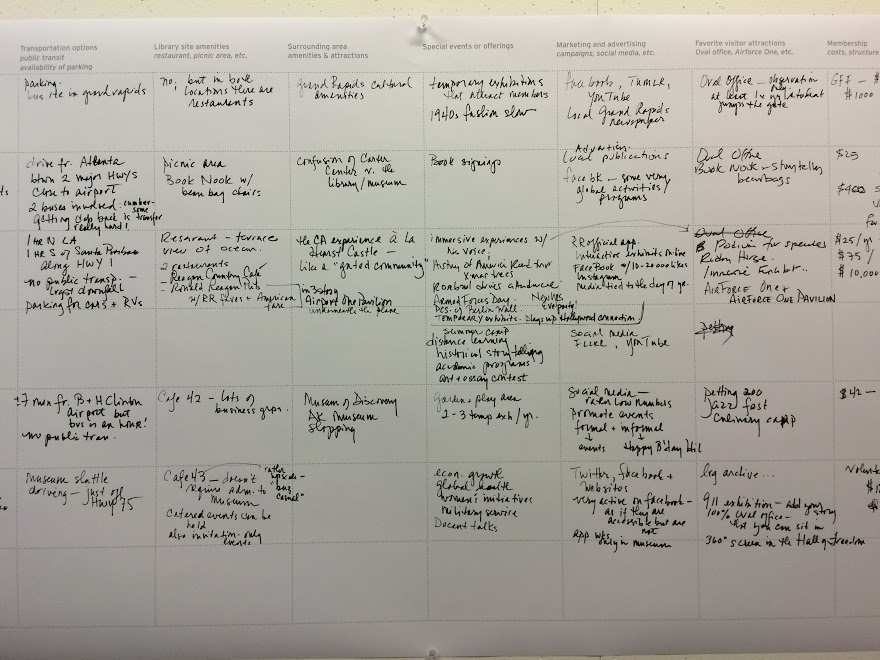 Transportation options
public transit
availability of parking
Library site amenities
restaurant, picnic area, etc.
Surrounding area
amenities & attractions
Special events or offerings
Marketing and advertising
campaigns, social media, etc.
Favorite visitor attractions
Oval office, Airforce One, etc.
Membership
costs, structure
parking.
bus line in grand rapids
no, but in both
locations there are
restaurants
grand Rapids cultural
amenities
temporary exhibitions
that attract members
1940s fashion show
facebook, Tumblr,
YouTube
Local Grand Rapids
newspaper
Oval Office — observation
at least 1x
jumps the gate
GFF — $
$1000
drive fr. Atlanta
btwn 2 major Hwys
close to airport
2 buses involved. cumber-
some
getting back is transfer
really hard!
picnic area
Book Nook w/
bean bag chairs
confusion of Carter
Center v. the
library/museum
Book signings
Advertising.
Local publications
facebk — some very
global activities/
programs
Oval Office
Book Nook — storytelling
beanbags
$25
1 HR N LA
1 HR S of Santa Barbara
along HWY 1
no public transp. —
largest downfall
parking for cars + RVs
Restaurant - terrace
view of ocean.
2 restaurants
Reagan Country Cafe
- Ronald Reagan Pub
w/RR faves + American
fare
the CA experience à la
Hearst Castle —
like a "gated community"
Airport One pavilion
underneath the plane
immersive experiences w/
his voice!
Xmas trees
Armed Forces Day.
Berlin Wall.
Temporary exhibits.
Hollywood connection
summer camp
distance learning
historical storytelling
academic programs
art + essay contest
RR official app.
interactive exhibits online
FaceBook w/10-20000 likes
Instagram
Media tied to the day of yr.
Social media
FLCKR, YouTube
Oval Office
Podium for speeches
AirForce One +
AIRFORCE ONE PAVILION
Petting
$25/yr.
$75/
$10,000
±7 min fr. B+H Clinton
airport but
bus is an hour!
no public tran.
Cafe 42 — lots of
business grps.
Museum of Discovery
AK museum
shopping
Garden + play area
2-3 temp exh/yr.
Social media —
rather low numbers
promote events
formal + informal
events
Happy B'day Hil
Petting zoo
Jazz fest
Culinary camp
$42 —
Museum shuttle
driving — just off
Hwy 75
Cafe 43 — doesn't
require adm. to
museum
rather
upscale —
"bus
casual"
Catered events can be
held
also invitation-only
events
econ. growth
global health
women's initiatives
military service
Docent talks
Twitter, facebook +
websites
very active on facebook —
as if they are
accessible but are
not
app wks
only in museum
lrg archive...
911 exhibition — add your
story
100% Oval Office —
that you can sit in
360° screen in the Hall of Freedom